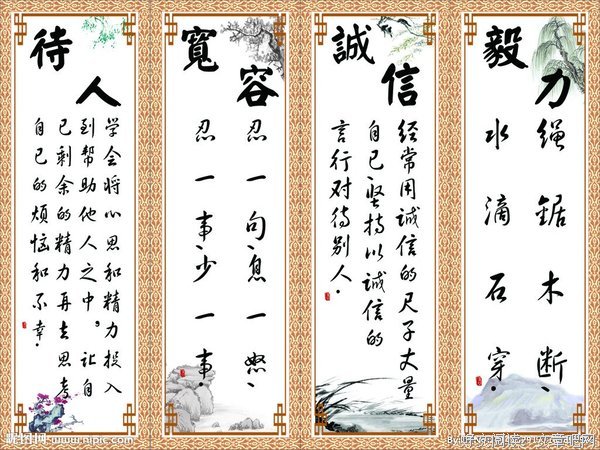 待人
学会将心思和精力投入
到帮助他人之中,让自
己剩余的精力再去思考
自己的烦恼和不幸.
寬容
忍一句、息一怒、
忍一事、少一事.
誠信
经常用诚信的尺子丈量
自己、坚持以诚信的
言行对待别人.
毅力
绳锯木断、
水滴石穿.
昵图网 www.nipic.com